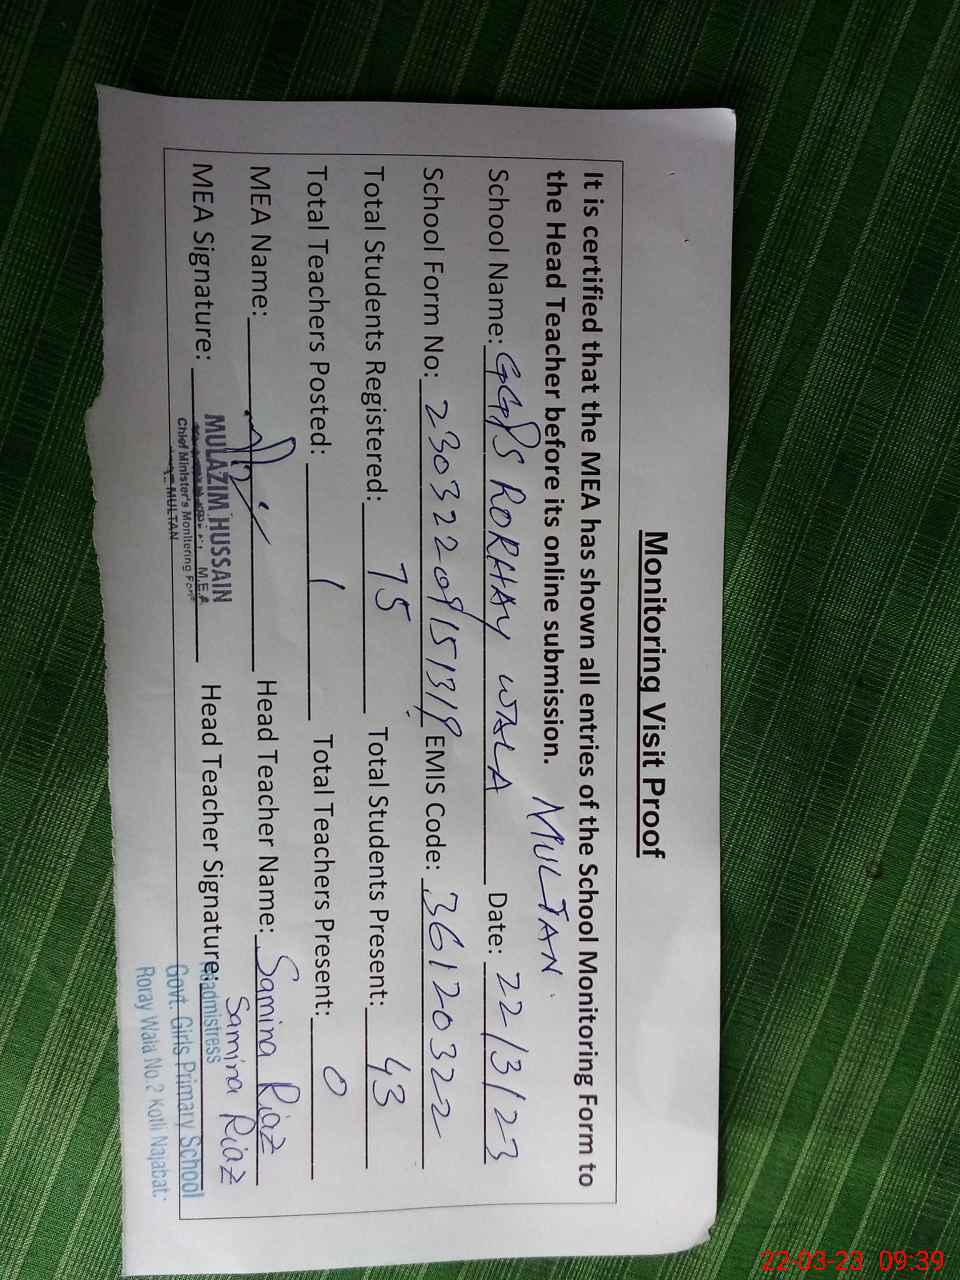 Monitoring Visit Proof
It is certified that the MEA has shown all entries of the School Monitoring Form to
the Head Teacher before its online submission. MULTAN.
School Name: GGPS RORHAY WALA Date: 22/3/23
School Form No: EMIS Code: 36120322
Total Students Registered: 75 Total Students Present: 43
Total Teachers Posted: 1 Total Teachers Present: 0
MEA Name: Head Teacher Name: Samina Riaz
MEA Signature: Head Teacher Signature: Samina Riaz
MULAZIM HUSSAIN
M.E.A
Chief Minister's Monitering Force
MULTAN
Headmistress
Govt. Girls Primary School
Roray Wala No.2 Kotli Najabat.
22-03-23 09:39